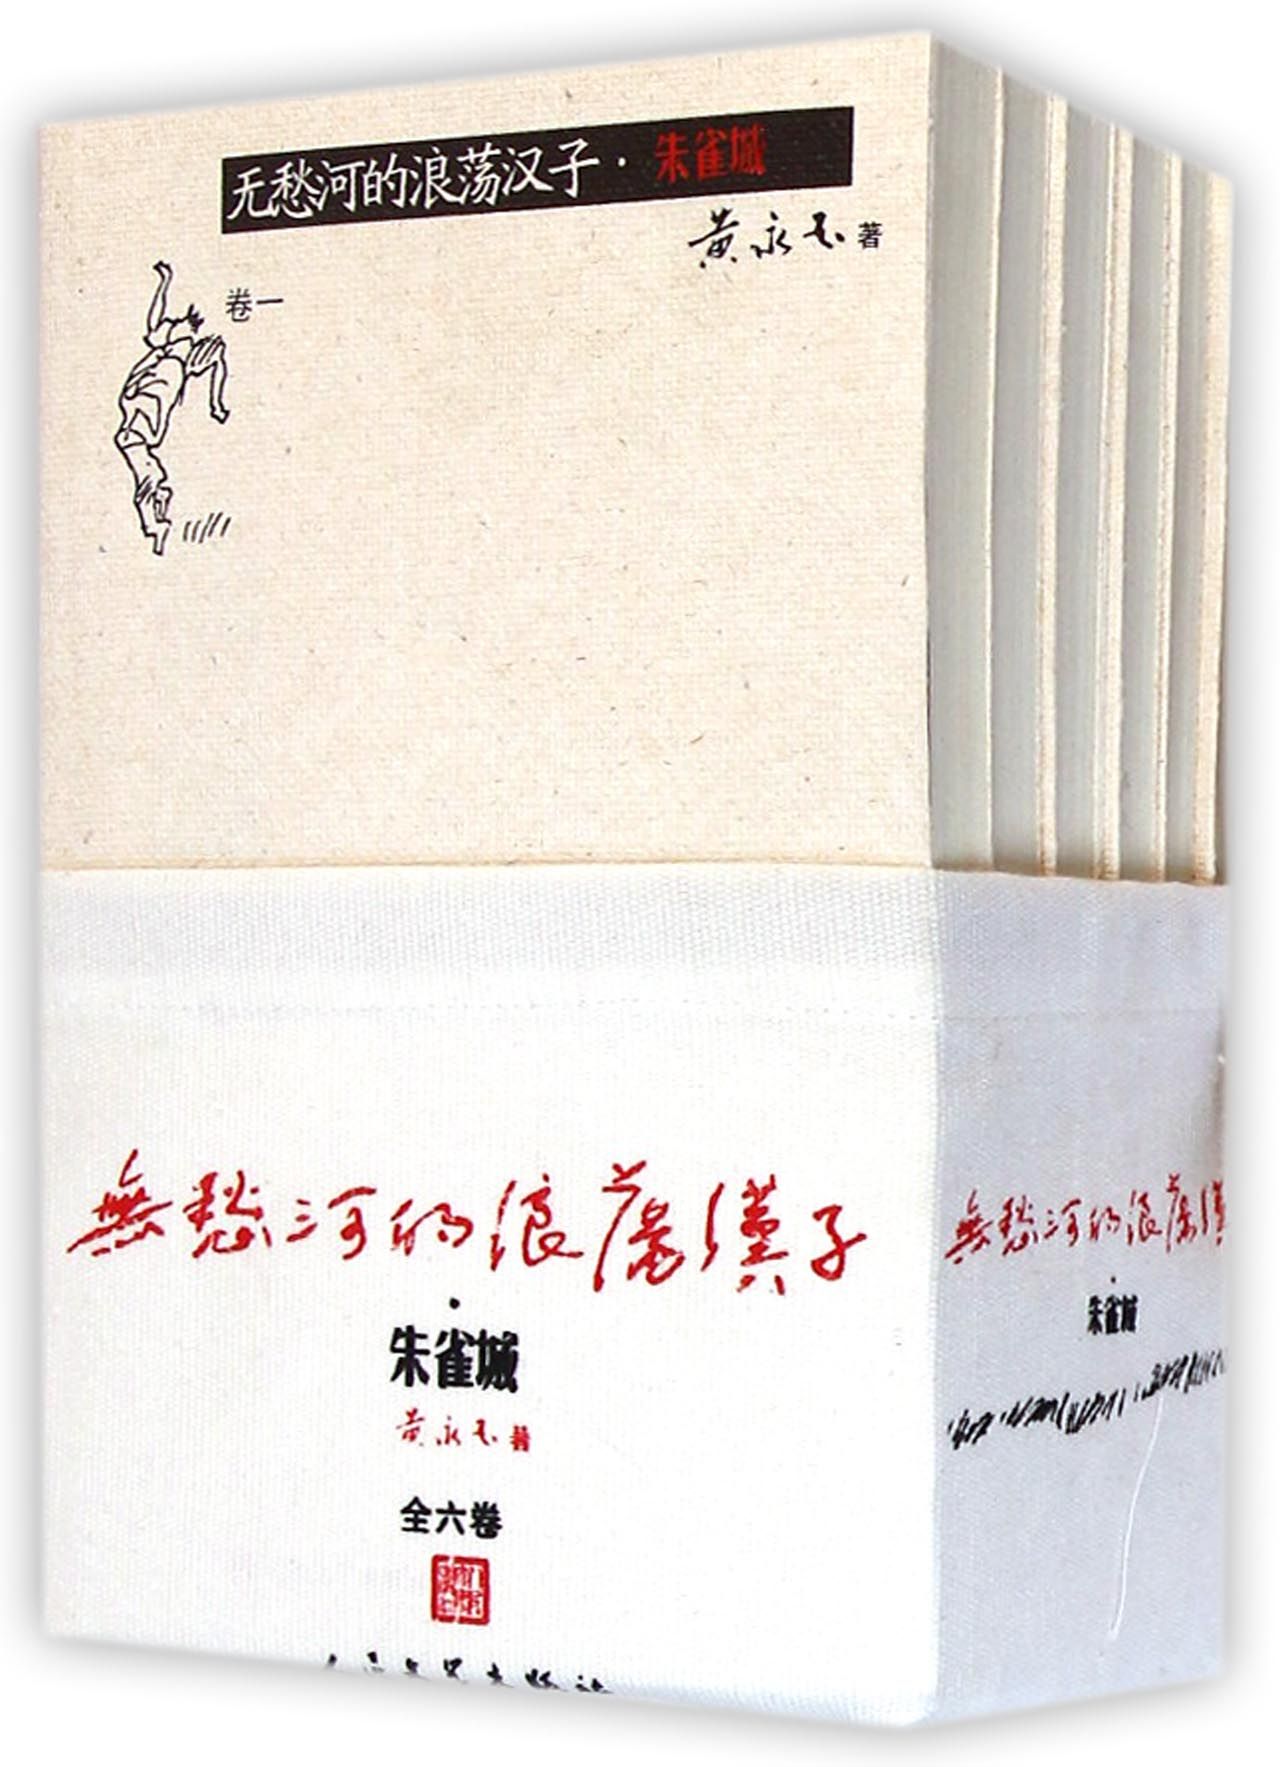 无愁河的浪荡汉子·朱雀城
黄永玉 著
卷一
無愁河的浪蕩漢子
·
朱雀城
黄永玉 著
全六卷
人民文学出版社
無愁河的浪蕩漢
·
朱雀城